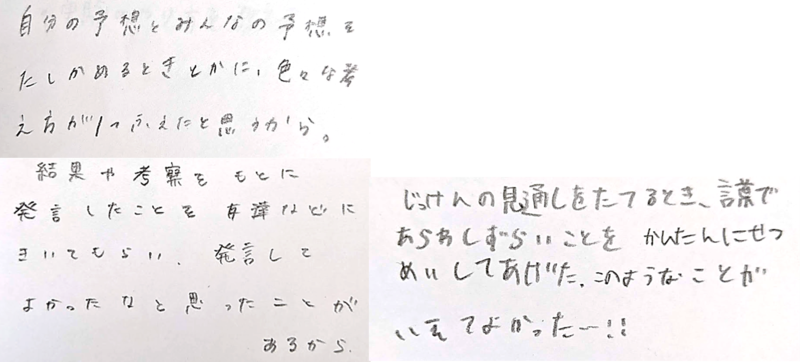 自分の予想とみんなの予想を
たしかめるときとかに、色々な考
え方が1つふえたと思うから。
結果や考察をもとに
発言したことを友達などに
きいてもらい、発言して
よかったなと思ったことが
あるから。
じっけんの見通しをたてるとき、言葉で
あらわしずらいことを かんたんにせつ
めいしてあげた。このようなことが
いえてよかったー!!